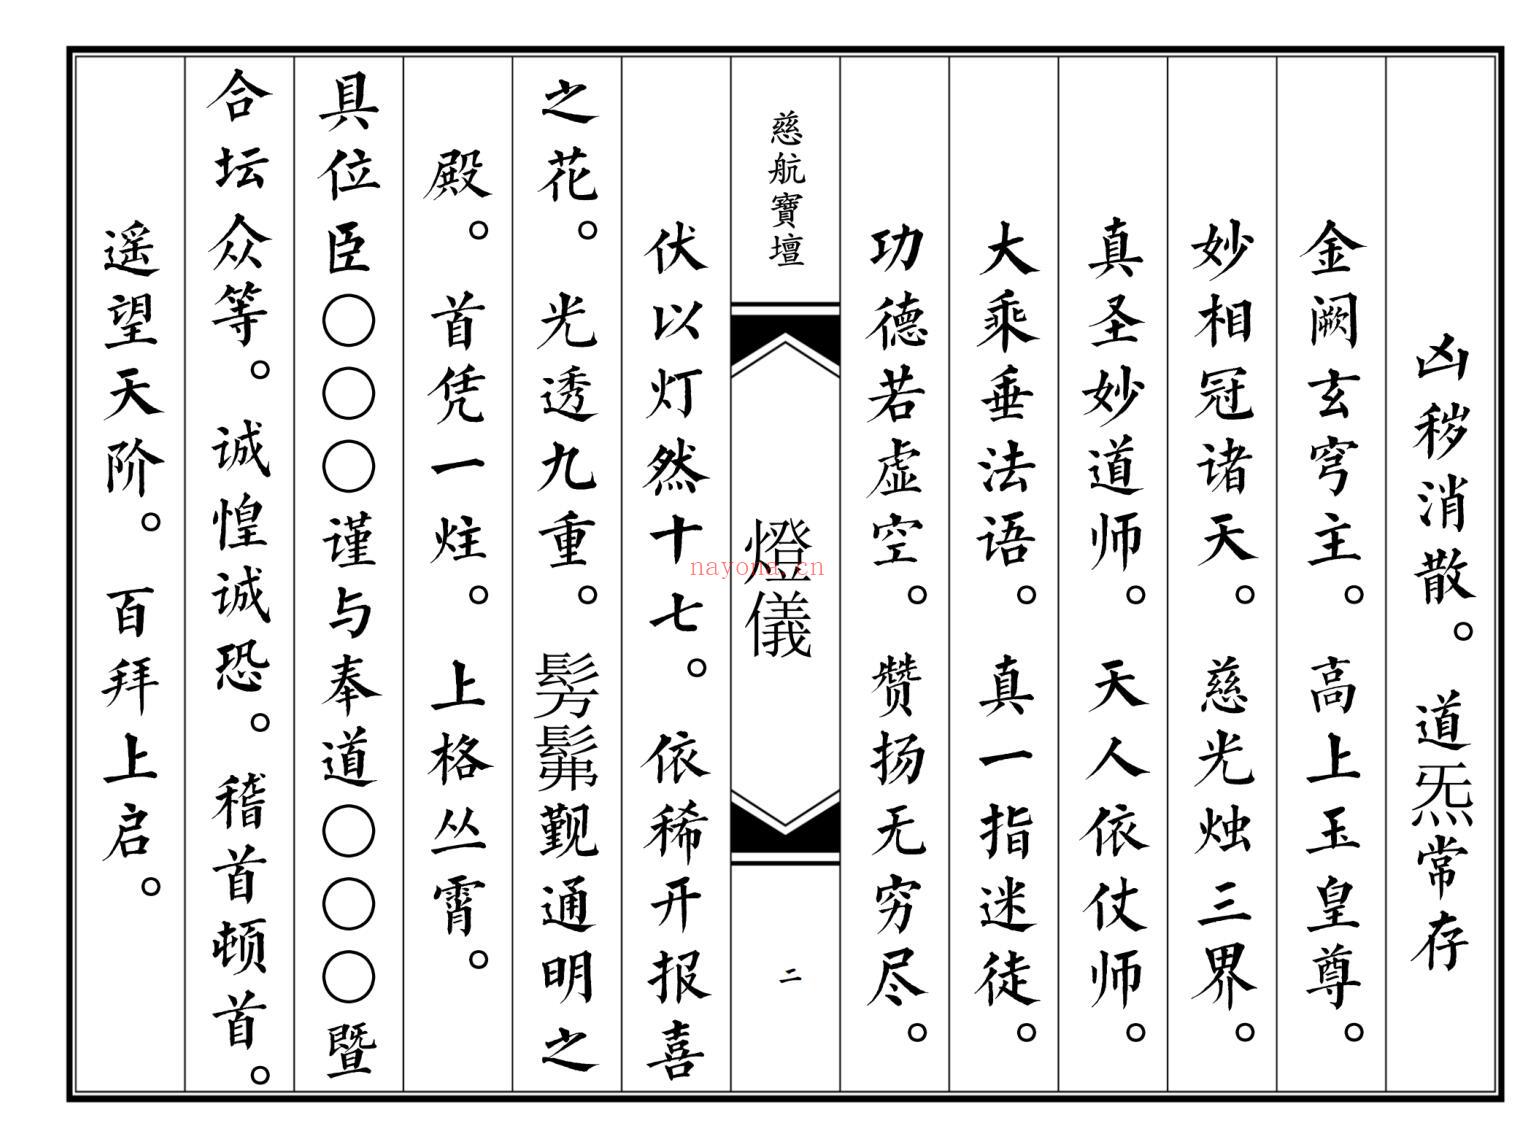 凶秽消散。道炁常存
金阙玄穹主。高上玉皇尊。
妙相冠诸天。慈光烛三界。
真圣妙道师。天人依仗师。
大乘垂法语。真一指迷徒。
功德若虚空。赞扬无穷尽。
慈航寶壇
燈儀
二
nayona.cn
伏以灯然十七。依稀开报喜
之花。光透九重。髣髴觐通明之
殿。首凭一炷。上格丛霄。
具位臣〇〇〇谨与奉道〇〇〇暨
合坛众等。诚惶诚恐。稽首顿首。
遥望天阶。百拜上启。